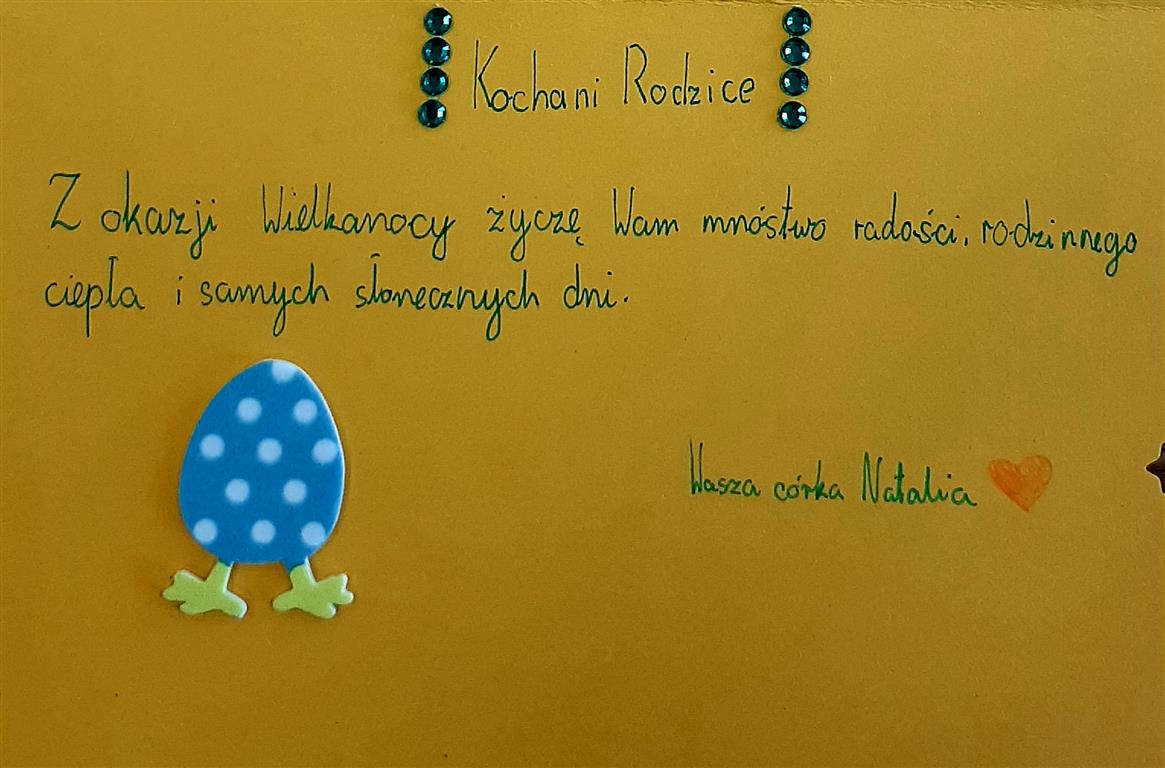 Kochani Rodzice
Z okazji Wielkanocy życzę Wam mnóstwo radości, rodzinnego
ciepła i samych słonecznych dni.
Wasza córka Natalia